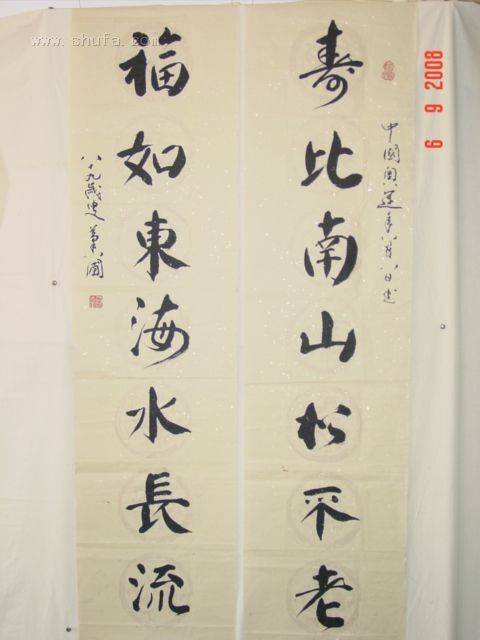 www.shufa.com
6 9 2008
中國奥運年八月八日書
寿比南山松不老
福如東海水長流
八十九歲